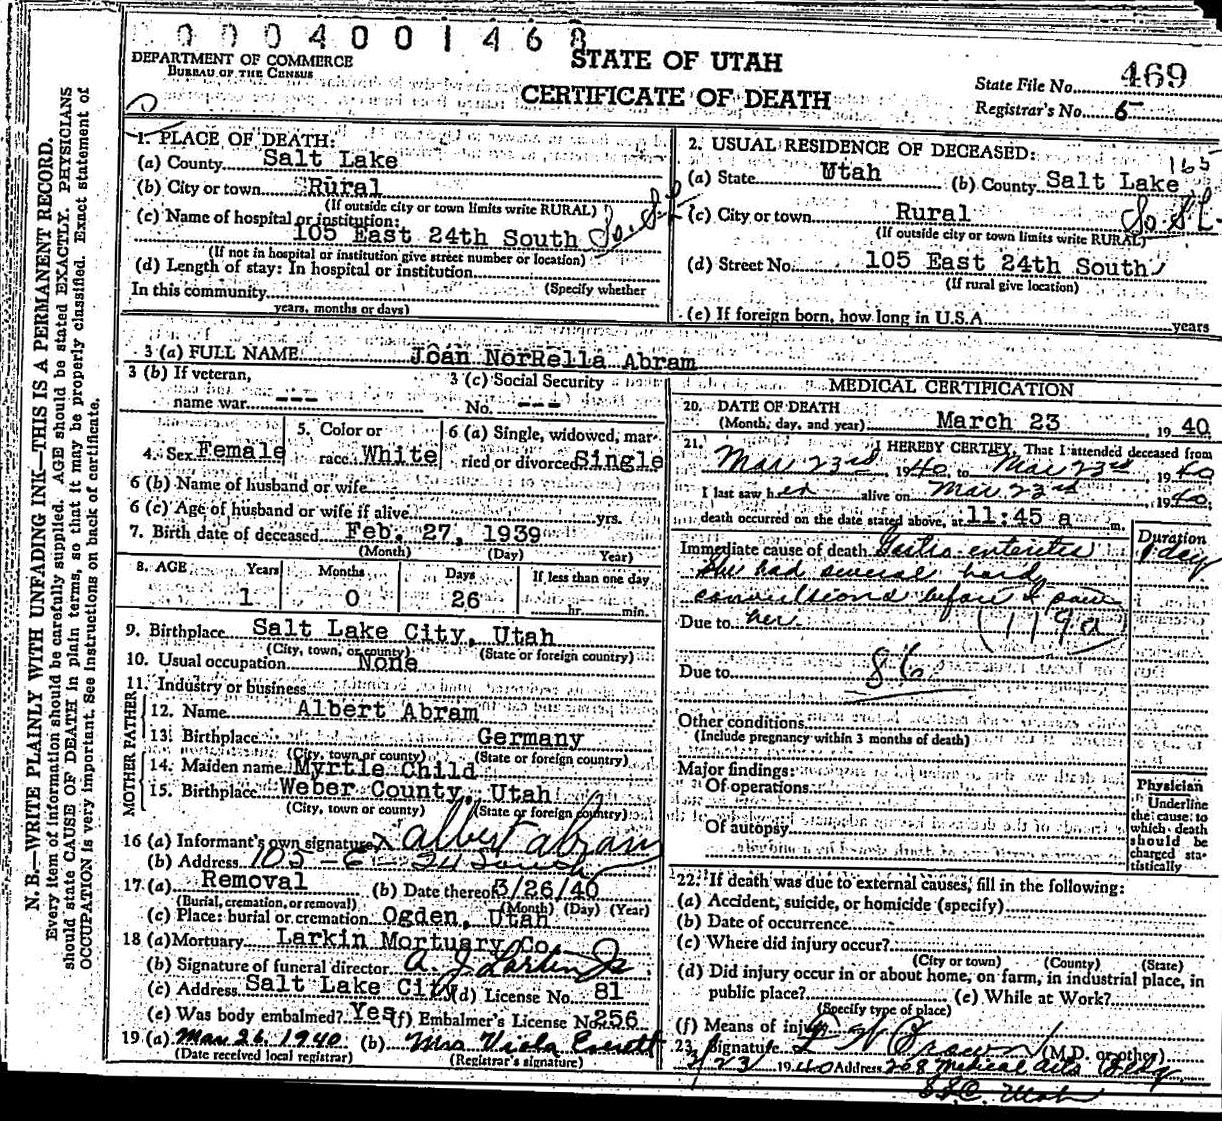 0004001468
DEPARTMENT OF COMMERCE
BUREAU OF THE CENSUS
STATE OF UTAH
CERTIFICATE OF DEATH
State File No. 469
Registrar's No. 5
N. B.—WRITE PLAINLY WITH UNFADING INK—THIS IS A PERMANENT RECORD.
Every item of information should be carefully supplied. AGE should be stated EXACTLY. PHYSICIANS
should state CAUSE OF DEATH in plain terms, so that it may be properly classified. Exact statement of
OCCUPATION is very important. See instructions on back of certificate.
1. PLACE OF DEATH:
(a) County Salt Lake
(b) City or town Rural
(If outside city or town limits write RURAL) So. S. L.
(c) Name of hospital or institution:
105 East 24th South
(If not in hospital or institution give street number or location)
(d) Length of stay: In hospital or institution
(Specify whether
In this community
years, months or days)
2. USUAL RESIDENCE OF DECEASED:
165
(a) State Utah (b) County Salt Lake
(c) City or town Rural So. S L.
(If outside city or town limits write RURAL)
(d) Street No. 105 East 24th South
(If rural give location)
(e) If foreign born, how long in U.S.A. years
3 (a) FULL NAME Joan NorRella Abram
3 (b) If veteran,
name war --- 
3 (c) Social Security
No. ---
4. Sex Female
5. Color or
race White
6 (a) Single, widowed, mar-
ried or divorced Single
6 (b) Name of husband or wife
6 (c) Age of husband or wife if alive yrs.
7. Birth date of deceased Feb. 27, 1939
(Month) (Day) Year)
8. AGE Years Months Days If less than one day
1 0 26 hr. min.
9. Birthplace Salt Lake City, Utah
(City, town, or county) (State or foreign country)
10. Usual occupation None
11. Industry or business
FATHER
12. Name Albert Abram
13. Birthplace Germany
(City, town or county) (State or foreign country)
MOTHER
14. Maiden name Myrtle Child
15. Birthplace Weber County, Utah
(City, town or county) (State or foreign country)
16 (a) Informant's own signature X Albert Abram
(b) Address 105 - E - 24 South
17 (a) Removal (b) Date thereof 3/26/40
(Burial, cremation, or removal) (Month) (Day) (Year)
(c) Place: burial or cremation Ogden, Utah
18 (a) Mortuary Larkin Mortuary Co.
(b) Signature of funeral director A. J. Larkin Jr.
(c) Address Salt Lake City (d) License No. 81
(e) Was body embalmed? Yes (f) Embalmer's License No. 256
19 (a) Mar. 26, 1940 (b) Mrs Viola Everett
(Date received local registrar) (Registrar's signature)
MEDICAL CERTIFICATION
20. DATE OF DEATH
(Month, day, and year) March 23 1940
21. I HEREBY CERTIFY, That I attended deceased from
Mar 23rd 1940 to Mar 23rd 1940
I last saw her alive on Mar 23rd 1940;
death occurred on the date stated above, at 11:45 a m.
Duration
Immediate cause of death Gastro-enteritis 1 day
She had several hard
convulsions before I saw
Due to her. (119a)
Due to 86
Other conditions
(Include pregnancy within 3 months of death)
Major findings:
Of operations
Of autopsy
Physician
Underline
the cause to
which death
should be
charged sta-
tistically
22. If death was due to external causes, fill in the following:
(a) Accident, suicide, or homicide (specify)
(b) Date of occurrence
(c) Where did injury occur?
(City or town) (County) (State)
(d) Did injury occur in or about home, on farm, in industrial place, in
public place? (e) While at Work?
(Specify type of place)
(f) Means of injury
23. Signature (M.D. or other)
3/23/ 1940 Address 208 Medical Arts Bldg.
S.L.C. Utah